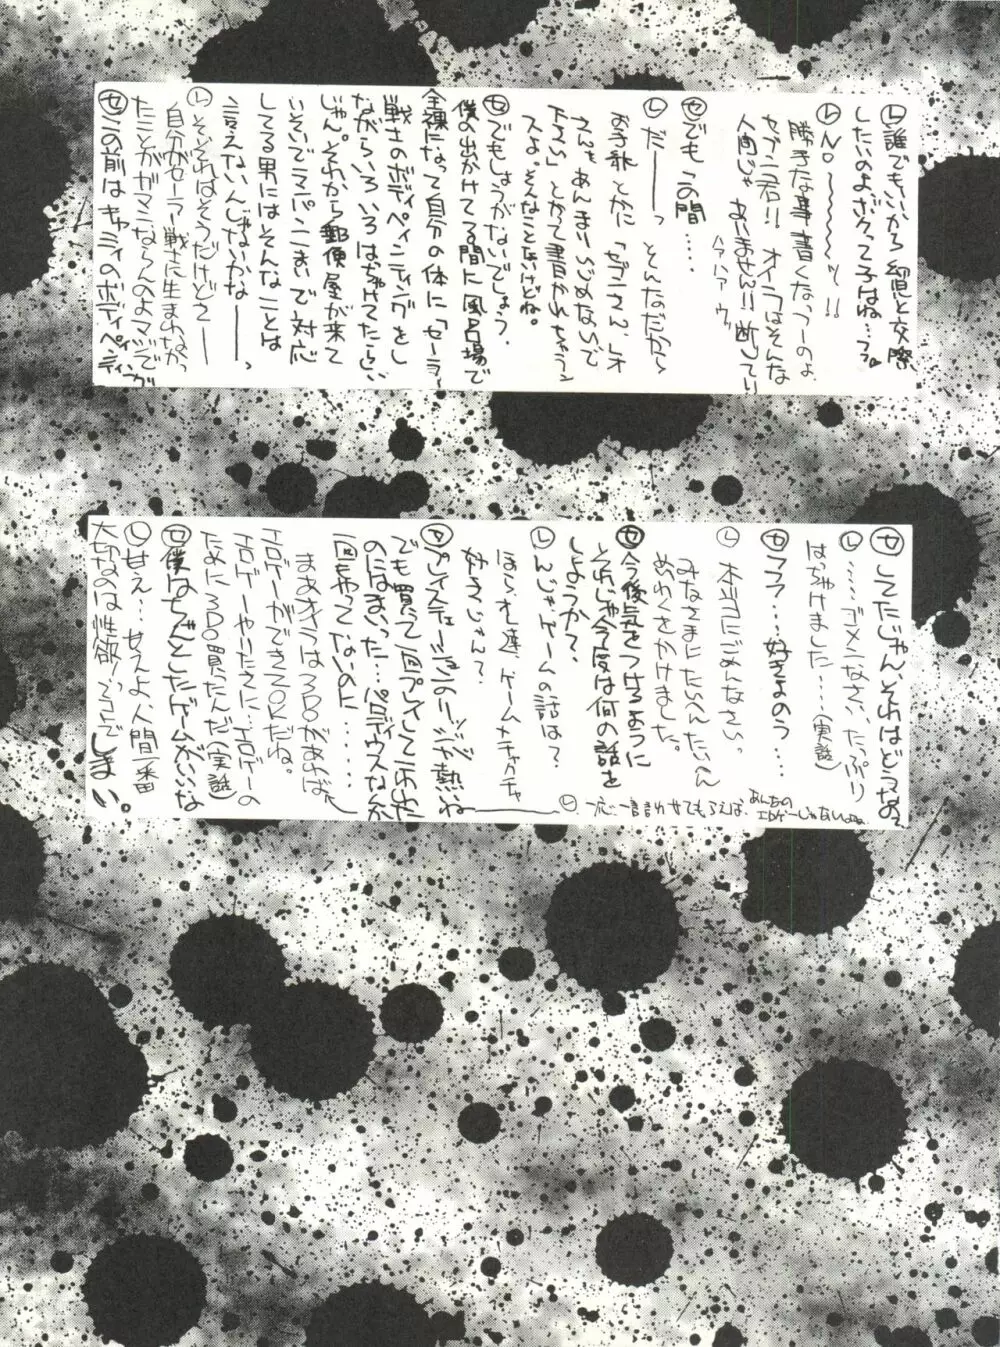 Ⓛ誰でもいいから幼児と交際
したいのよボクってネはね…つってる
Ⓛ NO〜〜〜〜〜ッ!!
勝手な事書くなつーのよ
セブニ君!! オイラはそんな
人間じゃありません!! 断じて!!
ハァハァ ウッ
セでもこの間…。
Ⓛ だーーーっ そんなだから
お手紙とかに「セブニさん、レオ
さんをあんまりいじめないで
下さい」とかって書かれちゃうン
スよ。そんなことないけどね。
セでもしょうがないでしょう。
僕の出かけてる間に風呂場で
全裸になって自分の体に「セーラー
戦士のボディペインティングをし
ながらいろいろはぢゃけてたとい
じゃん。それから郵便屋が来て
いそいでマパン一まいで対応
してる男にはそんなことは
言えないんじゃないかなーーーっ
Ⓛそ、それはそうだけどさーー
自分がセーラー戦士に生まれなかっ
たことがガマンならんのよマジで
セこの前はキャミィのボディペインティング
セしてたじゃん、それはどうなの。
Ⓛ……ゴメンなさい、たっぷり
はぢゃけました……(実話)
セフフフ…好きよのう…
Ⓛ 本当にごめんなさい。
みなさまにたいへんたいへん
めいわくをかけました。
セ今後気をつけるように
それじゃ今度は何の話を
しようか?
Ⓛんじゃゲームの話は?
ほらオレ達、ゲームメチャクチャ
好きじゃん?
セプレイステェーションのリーリャが熱ね
でも買って1回プレイしてこわれた
のにはまいった…パロディウスなんか
一回もやってないのに………
まあオラは3DOがあれば
エロゲーができてOKだね。
エロゲーやりたさに、エロゲーの
ために3DO買ったんだ(実話)
セ僕はちゃんとしたゲームがいいな
Ⓛ甘え…甘えよ、人間一番
大切なのは性欲!ってコトでしまい。
Ⓛ 一応一言言わせてもらえば、あんちの
エロゲーじゃないよね